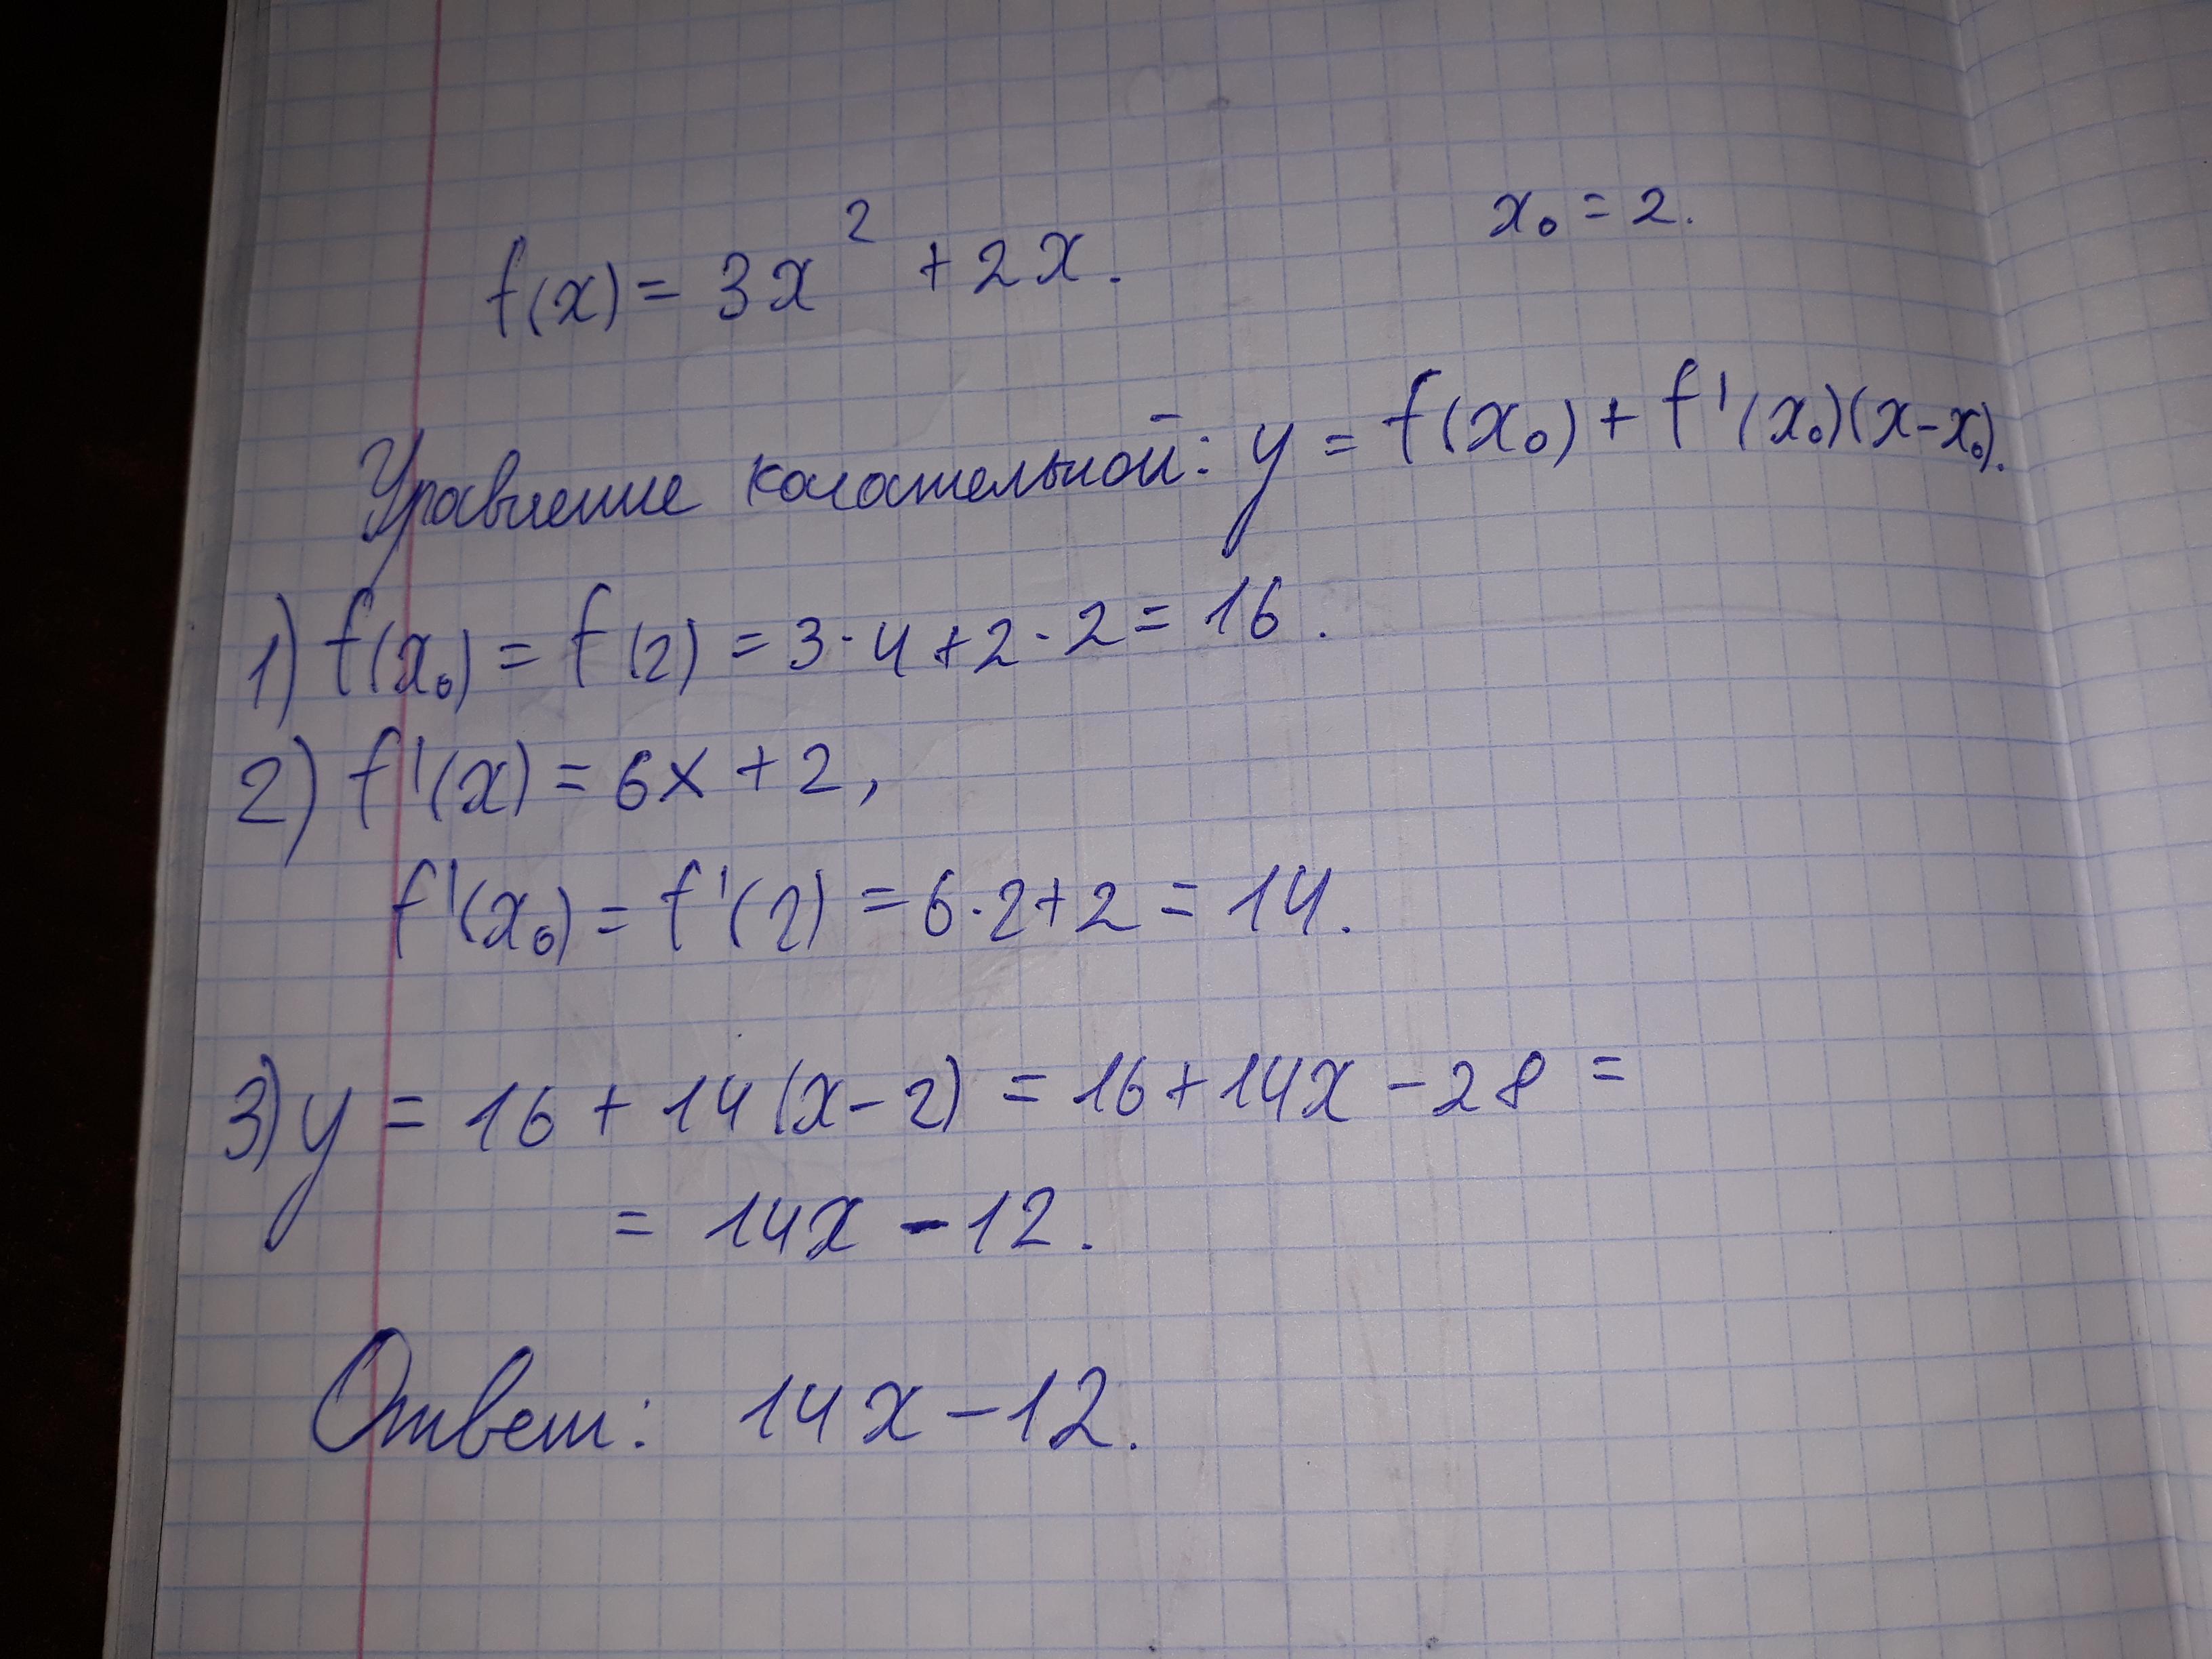 f(x) = 3x² + 2x. x₀ = 2.
Уравнение касательной: y = f(x₀) + f'(x₀)(x-x₀).
1) f(x₀) = f(2) = 3·4+2·2 = 16.
2) f'(x) = 6x + 2,
f'(x₀) = f'(2) = 6·2+2 = 14.
3) y = 16 + 14(x-2) = 16+14x-28 =
= 14x - 12.
Ответ: 14x - 12.